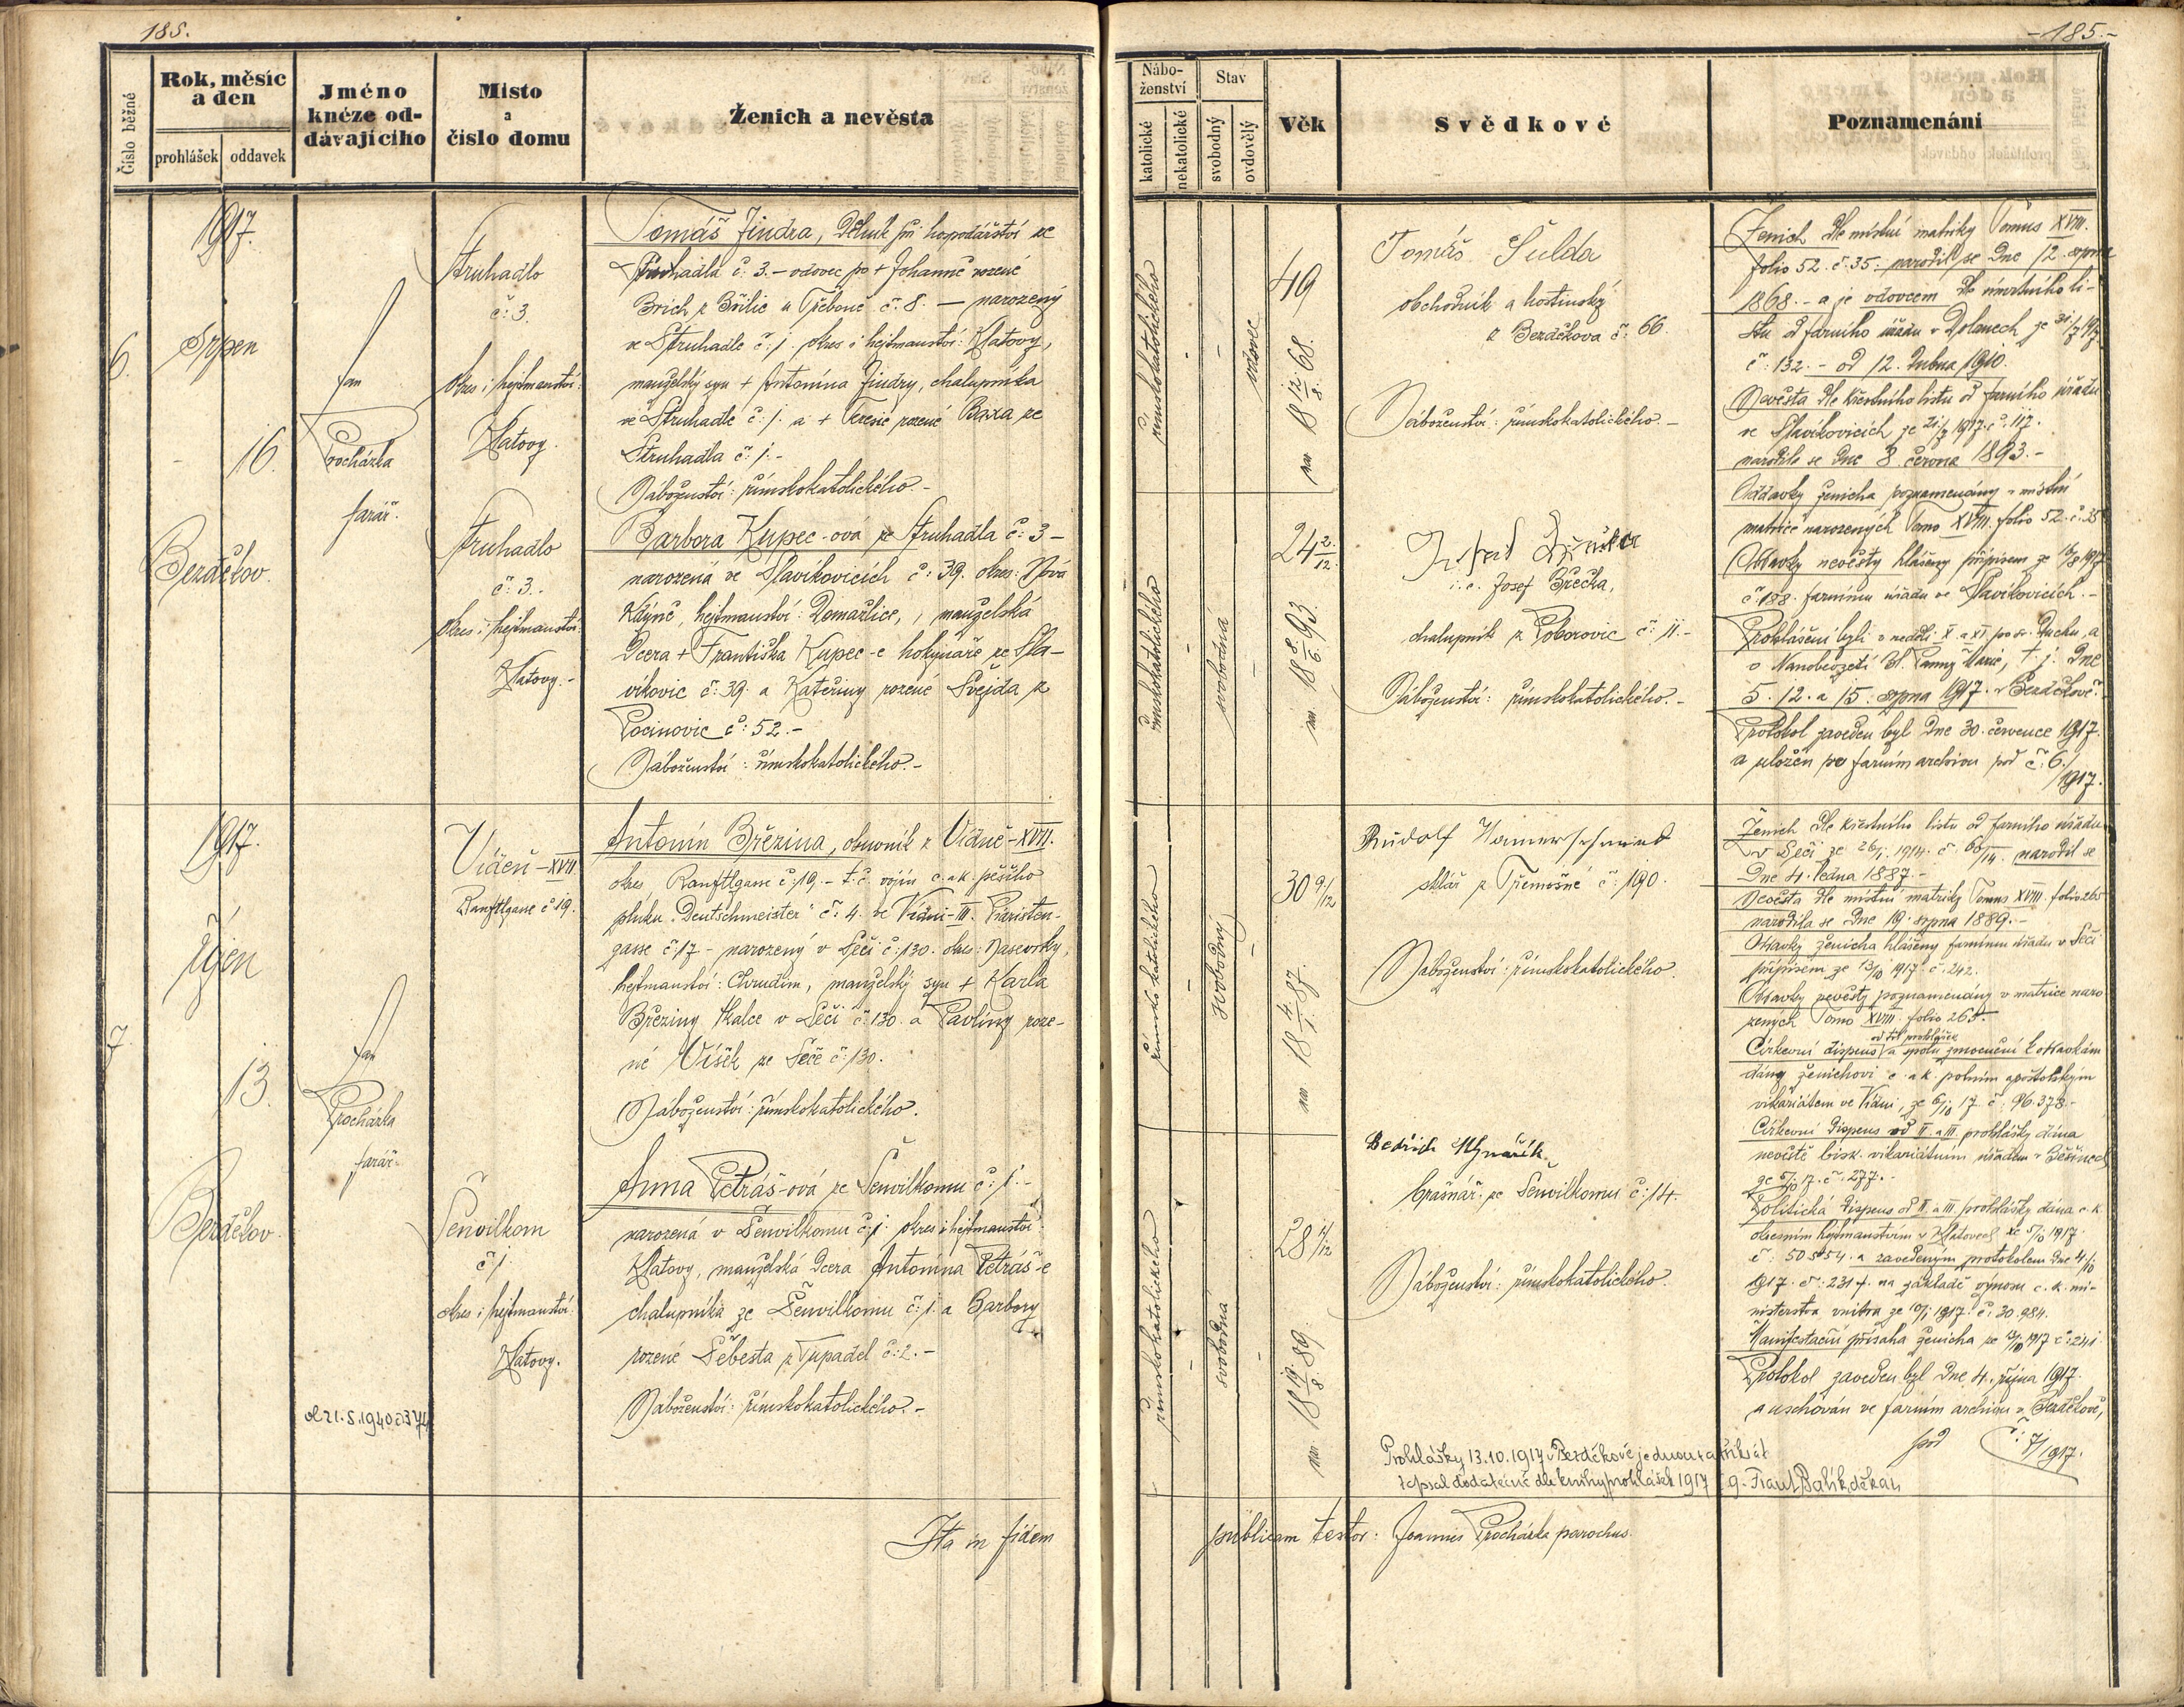 185.
-185.-
Číslo běžné
Rok, měsíc
a den
prohlášek
oddavek
Jméno
knéze od-
dávajícího
Misto
a
číslo domu
Ženich a nevěsta
Nábo-
ženství
katolické
nekatolické
Stav
svobodný
ovdovělý
Věk
Svědkové
Poznamenání
6.
1917.
Srpen
16.
Bezděkov.
Jan
Procházka
farář.
Struhadlo
č: 3.
okres i hejtmanství:
Klatovy.
Tomáš Jindra, dělník při hospodářství ze
Struhadla č: 3. – vdovec po + Johanně rozené
Brich z Břilic u Třeboně č: 8. — narozený
ve Struhadle č: 1. okres i hejtmanství: Klatovy,
manželský syn + Antonína Jindry, chalupníka
ve Struhadle č: 1. a + Terezie rozené Baxa ze
Struhadla č: 1. -
Náboženství: římskokatolického. -
římskokatolického
-
-
vdovec
49
nar. 18 12/8. 68.
Tomáš Šulda
obchodník a hostinský
z Bezděkova č: 66.
Náboženství: římskokatolického. -
Struhadlo
č: 3. -
okres i hejtmanství:
Klatovy. -
Barbora Kupec-ová ze Struhadla č: 3 –
narozená ve Slavíkovicích č: 39. okres: Nová
Kdýně, hejtmanství: Domažlice, manželská
dcera + Františka Kupec-e hokynáře ze Sla-
víkovic č: 39. a Kateřiny rozené Svejda z
Pocinovic č: 52. -
Náboženství: římskokatolického. -
římskokatolického
-
svobodná
-
24 2/12.
nar. 18 8/6. 93.
i. e. Josef Břečka,
chalupník z Poborovic č: 11. -
Náboženství: římskokatolického. -
Ženich dle místní matriky Tomus XVIII.
folio 52. č: 35. narodil se dne 12. srpna
1868. - a je vdovcem dle úmrtního li-
stu od farního úřadu v Dolanech ze 31/7 1917
č: 132. - od 12. dubna 1910.
Nevěsta dle křestního listu od farního úřadu
ve Slavíkovicích ze 21/7 1917. č: 117.
narodila se dne 8. června 1893. -
Oddavky ženicha poznamenány v místní
matrice narozených Tomo XVIII. folio 52. č: 35
Oddavky nevěsty hlášeny přípisem ze 16/8 1917
č: 188. farnímu úřadu ve Slavíkovicích. -
Prohlášeni byli v neděli X. a XI. po sv. Duchu, a
o Nanebevzetí bl. Panny Marie, t. j. dne
5. 12. a 15. srpna 1917. v Bezděkově.
Protokol zaveden byl dne 30. července 1917.
a uložen ve farním archivu pod č: 6./
1917.
7.
1917.
Říjen
13.
Bezděkov.
Jan
Procházka
farář.
Vídeň – XVII.
Ranftlgasse č: 19.
Antonín Březina, obuvník z Vídně – XVII.
okres, Ranftlgasse č: 19, - t. č. vojín c. a k. pěšího
pluku „Deutschmeister“ č: 4. ve Vídni – III. Piaristen-
gasse č: 17 - narozený v Seči č: 130. okres: Nasevrky,
hejtmanství: Chrudim, manželský syn + Karla
Březiny tkalce v Seči č: 130. a Pavlíny roze-
né Víšek ze Seče č: 130.
Náboženství: římskokatolického.
římskokatolického
-
svobodný
-
30 9/12
nar. 18 4/1. 87.
Rudolf Hamerschmied
sklář z Třemošné č: 190.
Náboženství: římskokatolického.
Šenvilkom
č: 1.
okres i hejtmanství:
Klatovy.
Anna Petráš-ová ze Šenvilkomu č: 1. -
narozená v Šenvilkomu č: 1. okres i hejtmanství:
Klatovy, manželská dcera Antonína Petráš-e
chalupníka ze Šenvilkomu č: 1. a Barbory
rozené Šebesta z Tupadel č: 2. -
Náboženství: římskokatolického. -
římskokatolického
-
svobodná
-
28 1/12
nar. 18 19/8. 89.
Bedřich
brašnář ze Šenvilkomu č: 14.
Náboženství: římskokatolického.
Ženich dle křestního listu od farního úřadu
v Seči ze 26/1. 1914. č: 60/14. narodil se
dne 4. ledna 1887. -
Nevěsta dle místní matriky Tomus XVIII. folio 265
narodila se dne 19. srpna 1889. -
Oddavky ženicha hlášeny farnímu úřadu v Seči
přípisem ze 13/10 1917 č: 242.
Oddavky nevěsty poznamenány v matrice naro-
zených Tomo XVIII. folio 265.
od tří prohlášek
Církevní dispens a spolu zmocnění k oddavkám
dány ženichovi c. a k. polním apoštolským
vikariátem ve Vídni, ze 6/10 17. č: 96.378. -
Církevní dispens od II. a III. prohlášky dána
nevěstě bisk. vikariátním úřadem v Běšinech
ze 5/10 17. č: 277. -
Politická dispens od II. a III. prohlášky dána c. k.
okresním hejtmanstvím v Klatovech ze 5/10 1917.
č: 50554. a zavedeným protokolem dne 4/10
1917. č: 231 f. na základě výnosu c. k. mi-
nisterstva vnitra ze 10/1 1917. č: 30.984.
Manifestační přísaha ženicha ze 13/10 1917 č: 241
Protokol zaveden byl dne 4. října 1917.
a uschován ve farním archivu v Bezděkově,
pod č: 7/1917.
Prohlášky 13.10.1917 v Bezděkově jednou
zapsal dodatečně dle knihy prohlášek 1917 Balík, děkan
Ita in fidem
publicam testor: Joannes Procházka parochus.